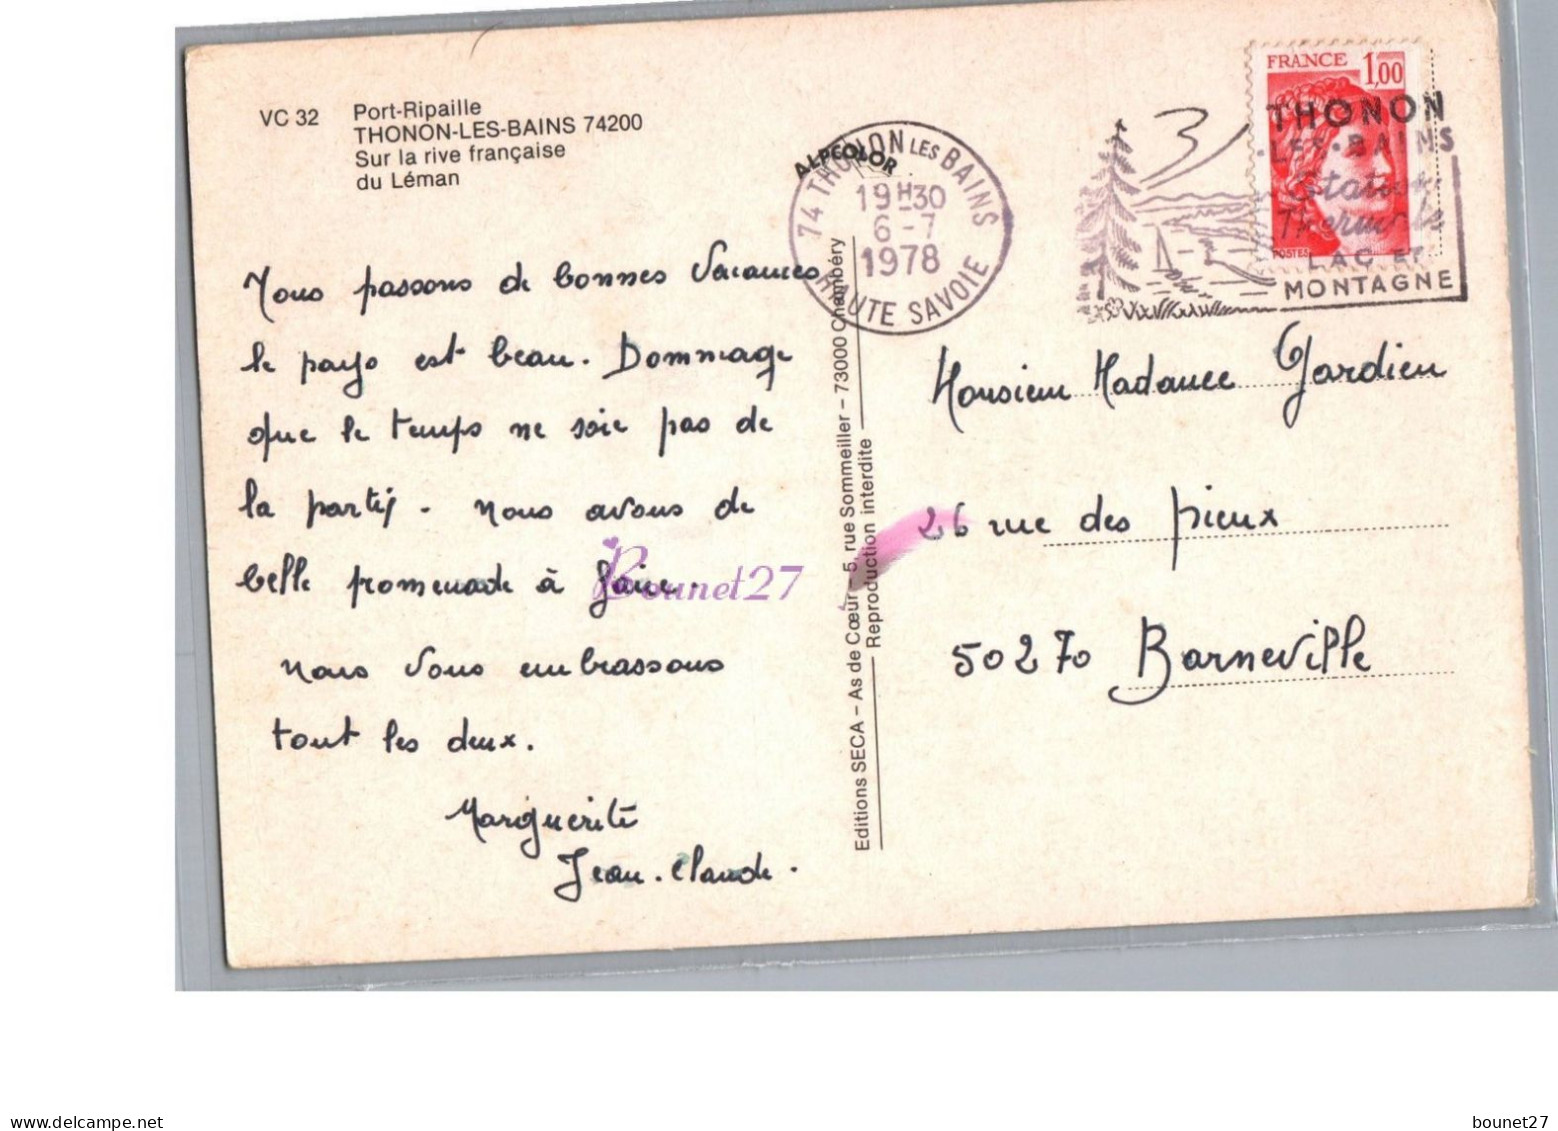 VC 32 Port-Ripaille
THONON-LES-BAINS 74200
Sur la rive française
du Léman
ALPCOLOR
74 THONON LES BAINS
19H30
6-7
1978
HAUTE SAVOIE
FRANCE 1,00
POSTES
THONON
·LES·BAINS
Station
Thermale
LAC ET
MONTAGNE
Nous passons de bonnes vacances
le pays est beau. Dommage
que le temps ne soie pas de
la parti. Nous avons de
belle promenade à faire.
Nous vous embrassons
tout les deux.
Marguerite
Jean-Claude.
Editions SECA – As de Cœur – 5, rue Sommeiller – 73000 Chambéry
Reproduction interdite
Monsieur Madame Gardien
26 rue des pieux
50270 Barneville
Bounet27
www.delcampe.net
bounet27